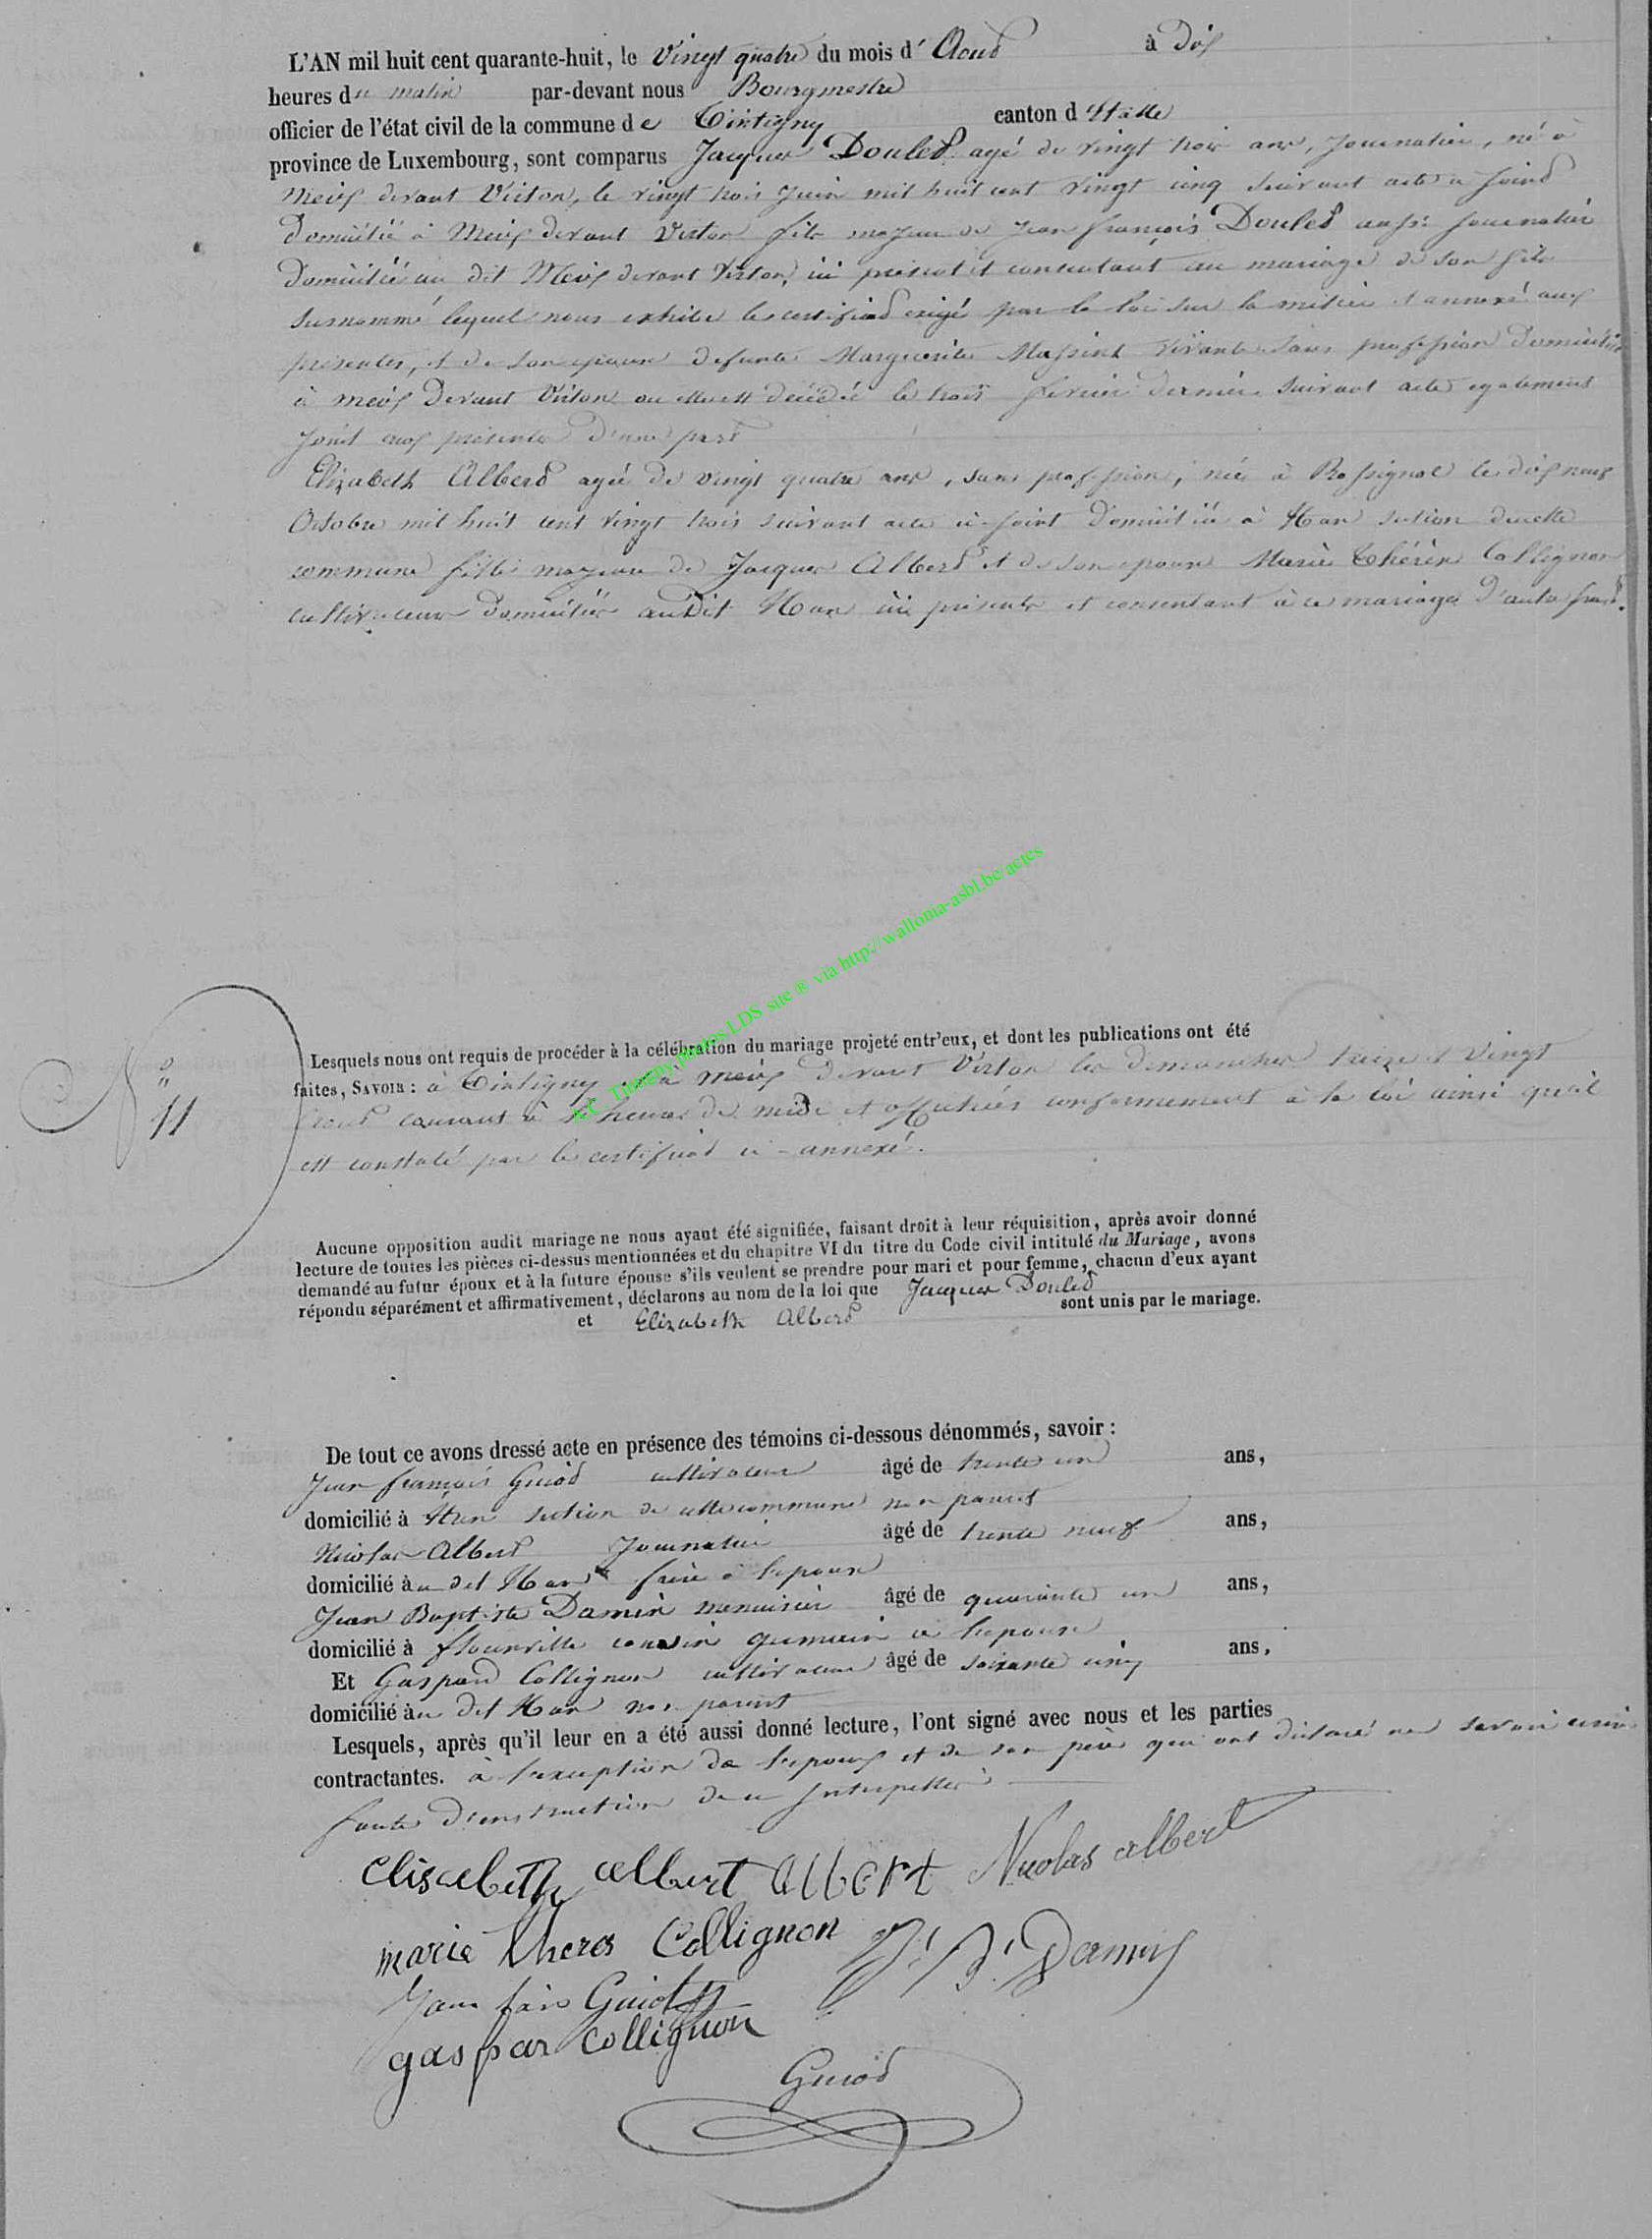 L'AN mil huit cent quarante-huit, le Vingt quatre du mois d' Aoud à Dix
heures du matin par-devant nous Bourgmestre
officier de l'état civil de la commune de Tintigny canton d'Etalle
province de Luxembourg, sont comparus Jacques Douled agé de vingt trois ans, Journalier, né à
Meix devant Virton, le vingt trois Juin mil huit cent vingt cinq suivant acte ci joind
Domicilié à Meix devant Virton fils majeur de Jean françois Douled aussi Journalier
Domicilié au dit Meix devant Virton, ici présent et consentant au mariage de son fils
surnommé lequel nous exhibe le certificad exigé par la loi sur la milice et annexé aux
présentes, et de son épouse defunte Marguerite Massint vivante sans profession Domiciliée
à meix Devant Virton ou elle est décédée le trois fevrier dernier suivant acte egalement
Joint aux présentes D'une pard
Elizabeth Alberd agée de vingt quatre ans, sans profession, née à Rossignol le dix neuf
Octobre mil huit cent vingt trois suivant acte ci-joint Domiciliée à Han section de cette
commune fille majeure de Jacques Alberd et de son épouse Marie Thérèse Collignon
cultivateurs Domiciliés audit Han ici présents et consentant à ce mariage D'autre pard.
Lesquels nous ont requis de procéder à la célébration du mariage projeté entr'eux, et dont les publications ont été
faites, SAVOIR : à Tintigny et à meix Devant Virton les dimanches treize et Vingt
aoud courant à heures de midi et affichées conformement à la loi ainsi qu'il
est constaté par le certificad ci-annexé.
No 11
Aucune opposition audit mariage ne nous ayant été signifiée, faisant droit à leur réquisition, après avoir donné
lecture de toutes les pièces ci-dessus mentionnées et du chapitre VI du titre du Code civil intitulé du Mariage, avons
demandé au futur époux et à la future épouse s'ils veulent se prendre pour mari et pour femme, chacun d'eux ayant
répondu séparément et affirmativement, déclarons au nom de la loi que Jacques Douled
et Elizabeth Alberd sont unis par le mariage.
De tout ce avons dressé acte en présence des témoins ci-dessous dénommés, savoir :
Jean françois Guiod cultivateur âgé de trente un ans,
domicilié à Han section de cette commune non parent
Nicolas Alberd Journalier âgé de trente neuf ans,
domicilié au dit Han frère à l'épouse
Jean Baptiste Damin menuisier âgé de quarante un ans,
domicilié à florenville cousin germain à l'épouse
Et Gaspard Collignon cultivateur âgé de soixante cinq ans,
domicilié au dit Han non parent
Lesquels, après qu'il leur en a été aussi donné lecture, l'ont signé avec nous et les parties
contractantes. à l'exception de l'époux et de son père qui ont déclaré ne savoir écrire
faute D'instruction de ce Interpellés
Elisabeth albert Albert Nicolas albert
marie theres Collignon J. B. Damin
Jean frois Guiot
gaspar Collignon
Guiod
A.C. Tintigny photos LDS site ® via http://wallonia-asbl.be/actes